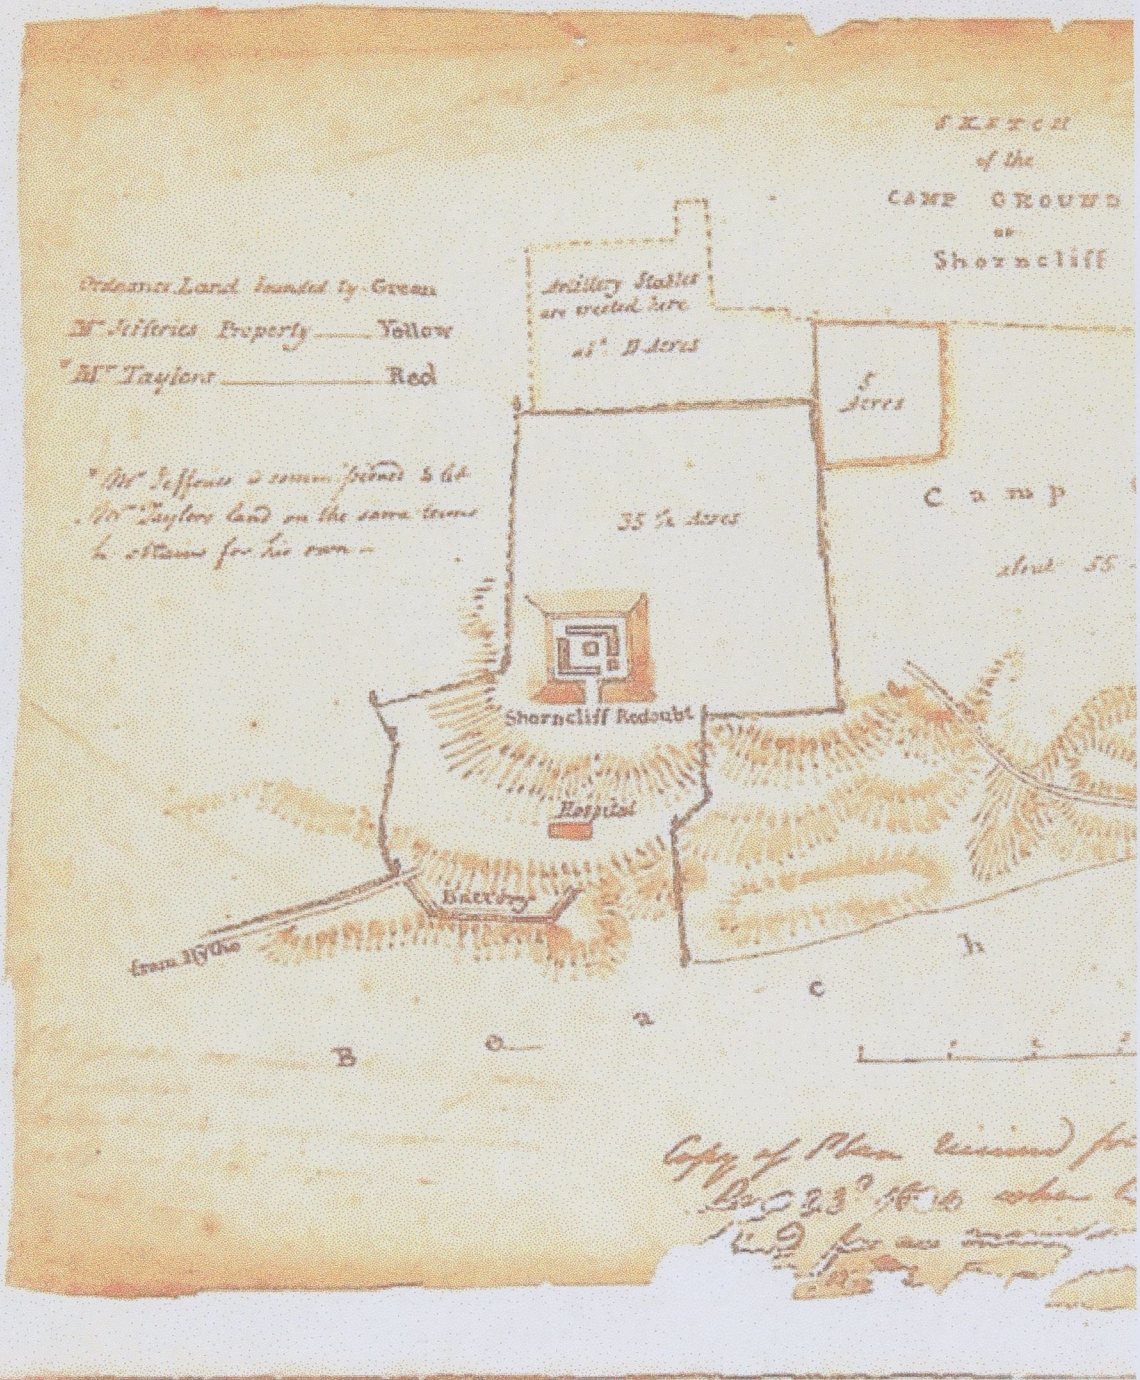 SKETCH
of the
CAMP GROUND
at
Shorncliff
Ordnance Land bounded by Green
Mr Jefferies Property Yellow
* Mr Taylors Red
* Mr Jefferies is commissioned to let
Mr Taylors land on the same terms
he obtains for his own —
Artillery Stables
are erected here
11 Acres
5
Acres
35 1/2 Acres
Camp
about 55
Shorncliff Redoubt
Hospital
Battery
from Hythe
B e a c h
Copy of Plan
23d when
for an